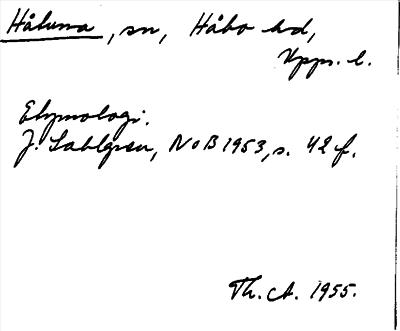 Håtuna, sn, Håbo hd,
Upps. l.
Etymologi.
J. Sahlgren, NoB 1953, s. 42 f.
Th. A. 1955.